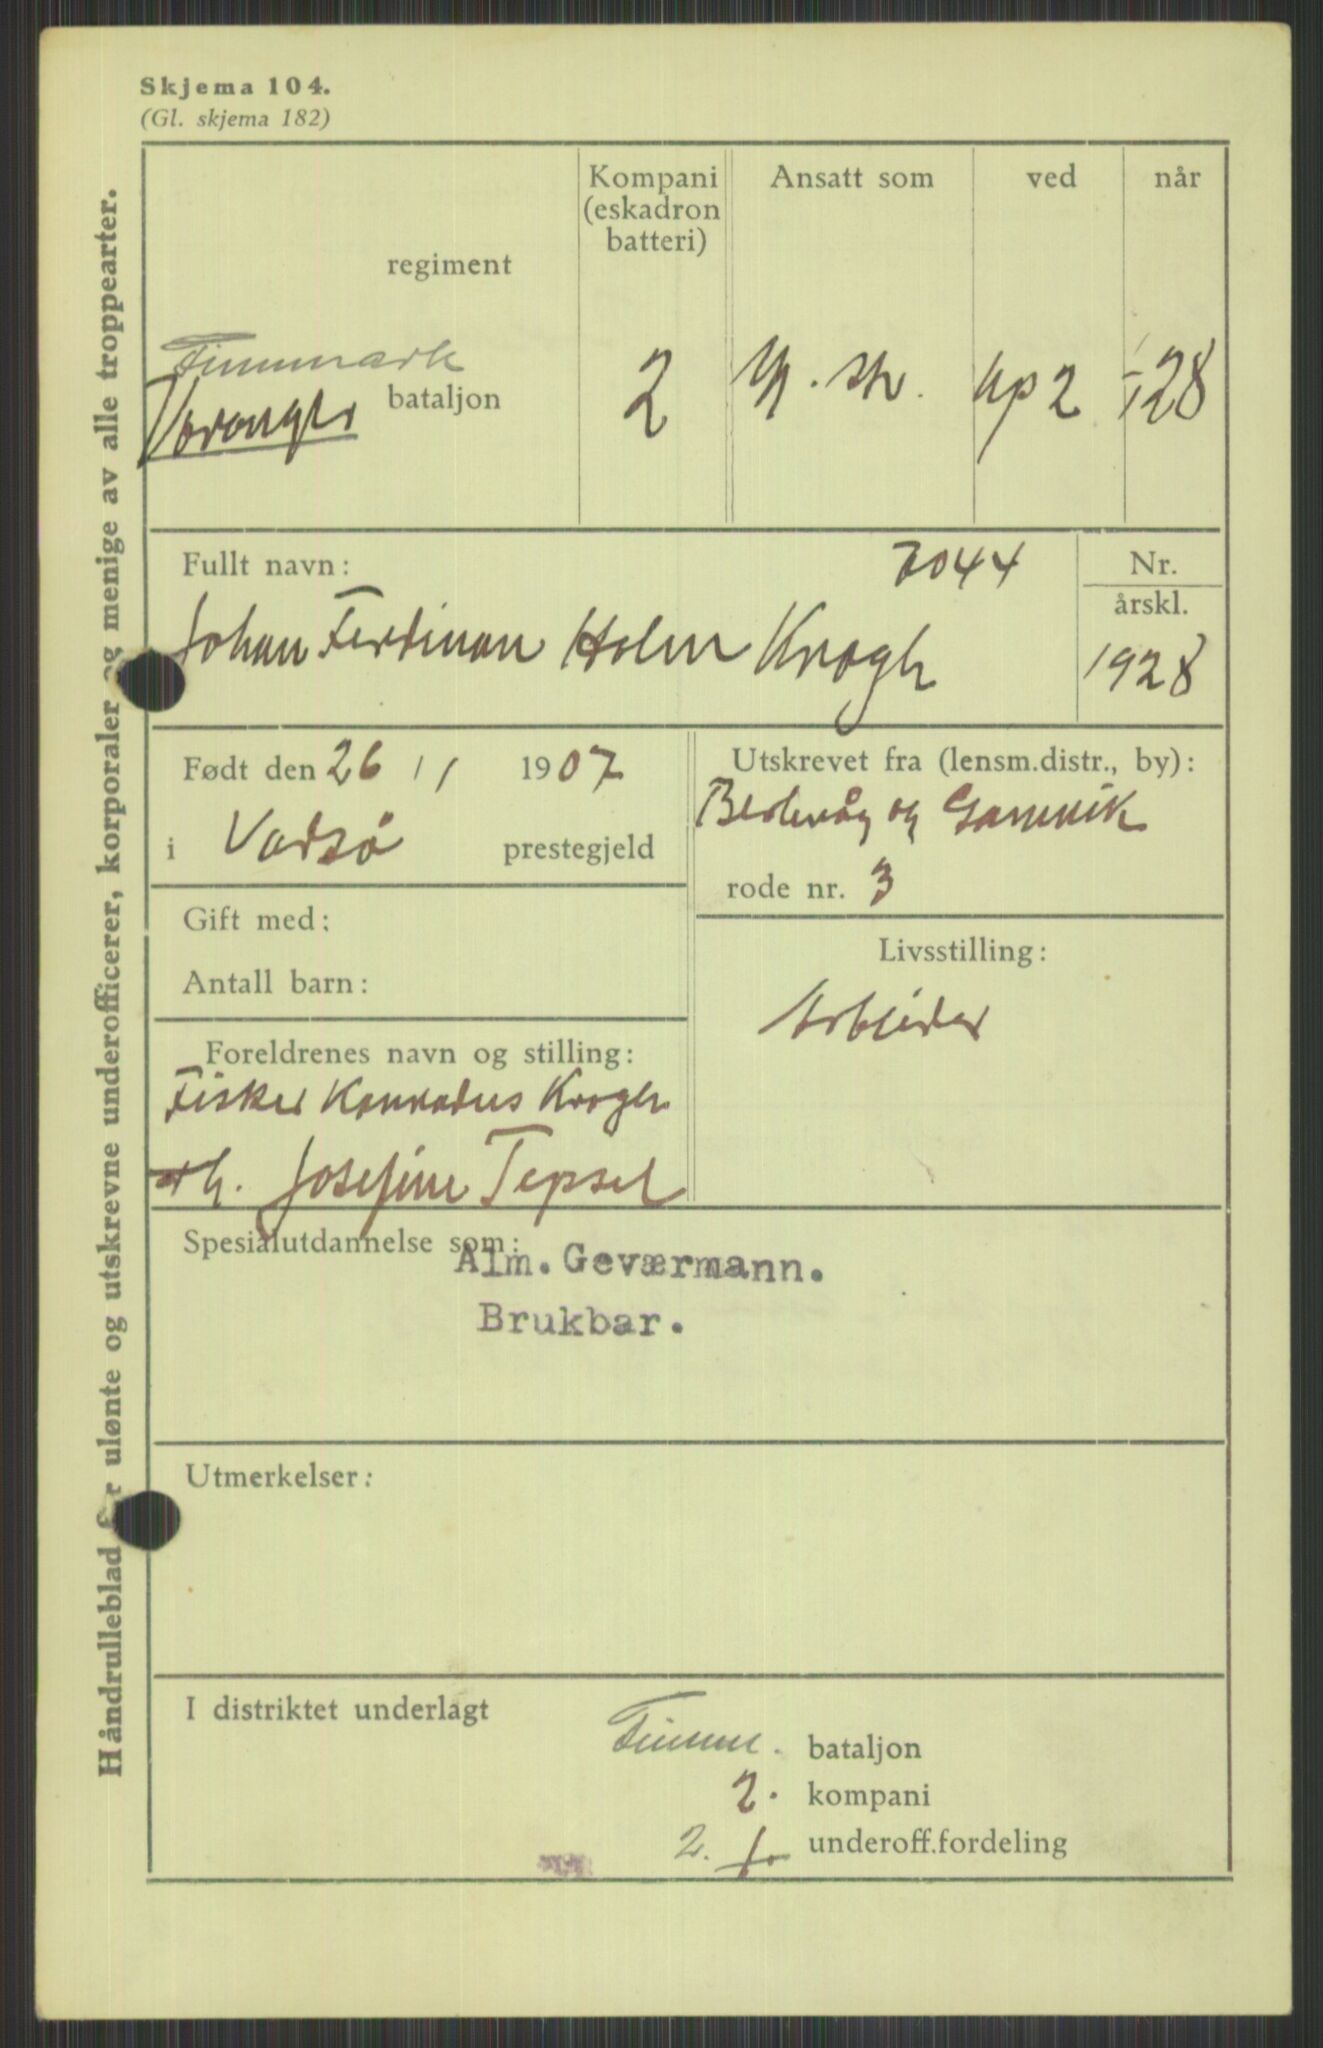 Skjema 104.
(Gl. skjema 182)
Håndrulleblad for ulønte og utskrevne underofficerer, korporaler og menige av alle troppearter.
regiment
Kompani
(eskadron
batteri)
Ansatt som
ved
når
Finnmark
Varanger bataljon
2
kp 2
28
Fullt navn:
7044
Nr.
årskl.
Johan Ferdinan Holm Krogh
1928
Født den 26/1 1907
i Vadsø prestegjeld
Utskrevet fra (lensm.distr., by):
Berlevåg og Gamvik
rode nr. 3
Gift med:
Antall barn:
Livsstilling:
Arbeider
Foreldrenes navn og stilling:
Fisker Konradus Krogh
Josefine Tepsel
Spesialutdannelse som:
Alm. Geværmann.
Brukbar.
Utmerkelser:
I distriktet underlagt
Finnm. bataljon
2. kompani
2. underoff.fordeling